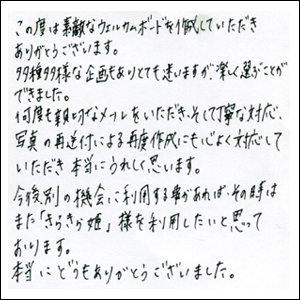 この度は素敵なウェルカムボードを作成していただき
ありがとうございます。
多種多様な企画もありとても迷いますが、楽しく選ぶことが
できました。
何度も親切なメールをいただき、そして丁寧な対応、
写真の再送付による再度作成にも心よく対応して
いただき本当にうれしく思います。
今後別の機会に利用する事があれば、その時は
また「きらきら姫」様を利用したいと思って
おります。
本当にどうもありがとうございました。